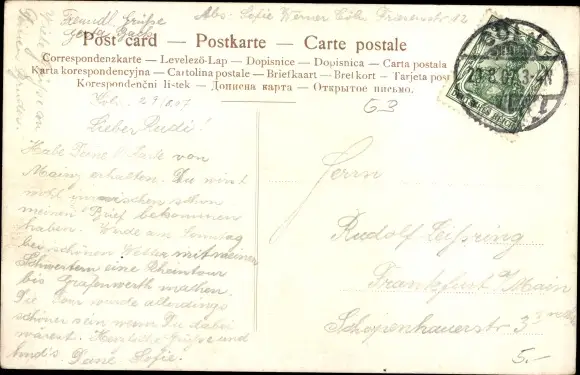 Freundl. Grüße
Abs: Sofie Werner Cöln,
12
Viele Grüße an
Deine
Post card — Postkarte — Carte postale
Correspondenzkarte — Levelező-Lap — Dopisnice — Dopisnica — Carta postala
Karta korespondencyjna — Cartolina postale — Briefkaart — Brefkort — Tarjeta post
Korespondenční lístek — Дописна карта — Открытое письмо.
CÖLN
29.8.07. 3-4N
63
Lieber Rudi!
Habe Deine Karte von
Mainz erhalten. Du wirst
wohl inzwischen schon
meinen Brief bekommen
haben. Werde am Sonntag
bei schönen Wetter mit meinen
Schwestern eine Rheintour
bis Grafenwerth machen.
Die Tour würde allerdings
schöner sein wenn Du dabei
wärest. Herzliche Grüße und
Deine Sofie.
Herrn
Rudolf Leipring
Frankfurt a/Main
Schopenhauerstr 3
5.-